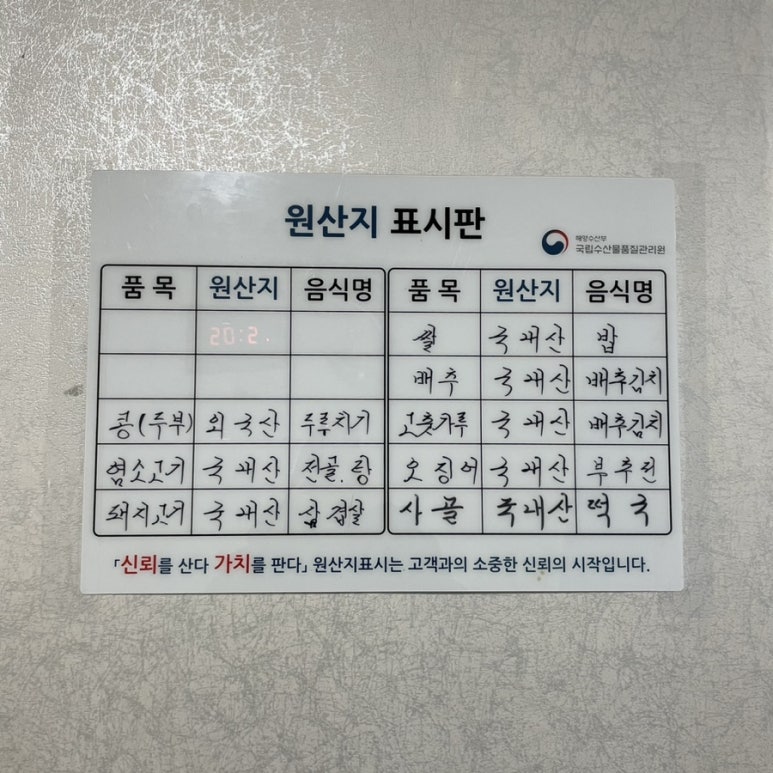 원산지 표시판
해양수산부
국립수산물품질관리원
품목 원산지 음식명 품목 원산지 음식명
20:2 쌀 국내산 밥
배추 국내산 배추김치
콩(두부) 외국산 두루치기 고춧가루 국내산 배추김치
염소고기 국내산 전골.탕 오징어 국내산 부추전
돼지고기 국내산 삼겹살 사골 국내산 떡국
「신뢰를 산다 가치를 판다」 원산지표시는 고객과의 소중한 신뢰의 시작입니다.